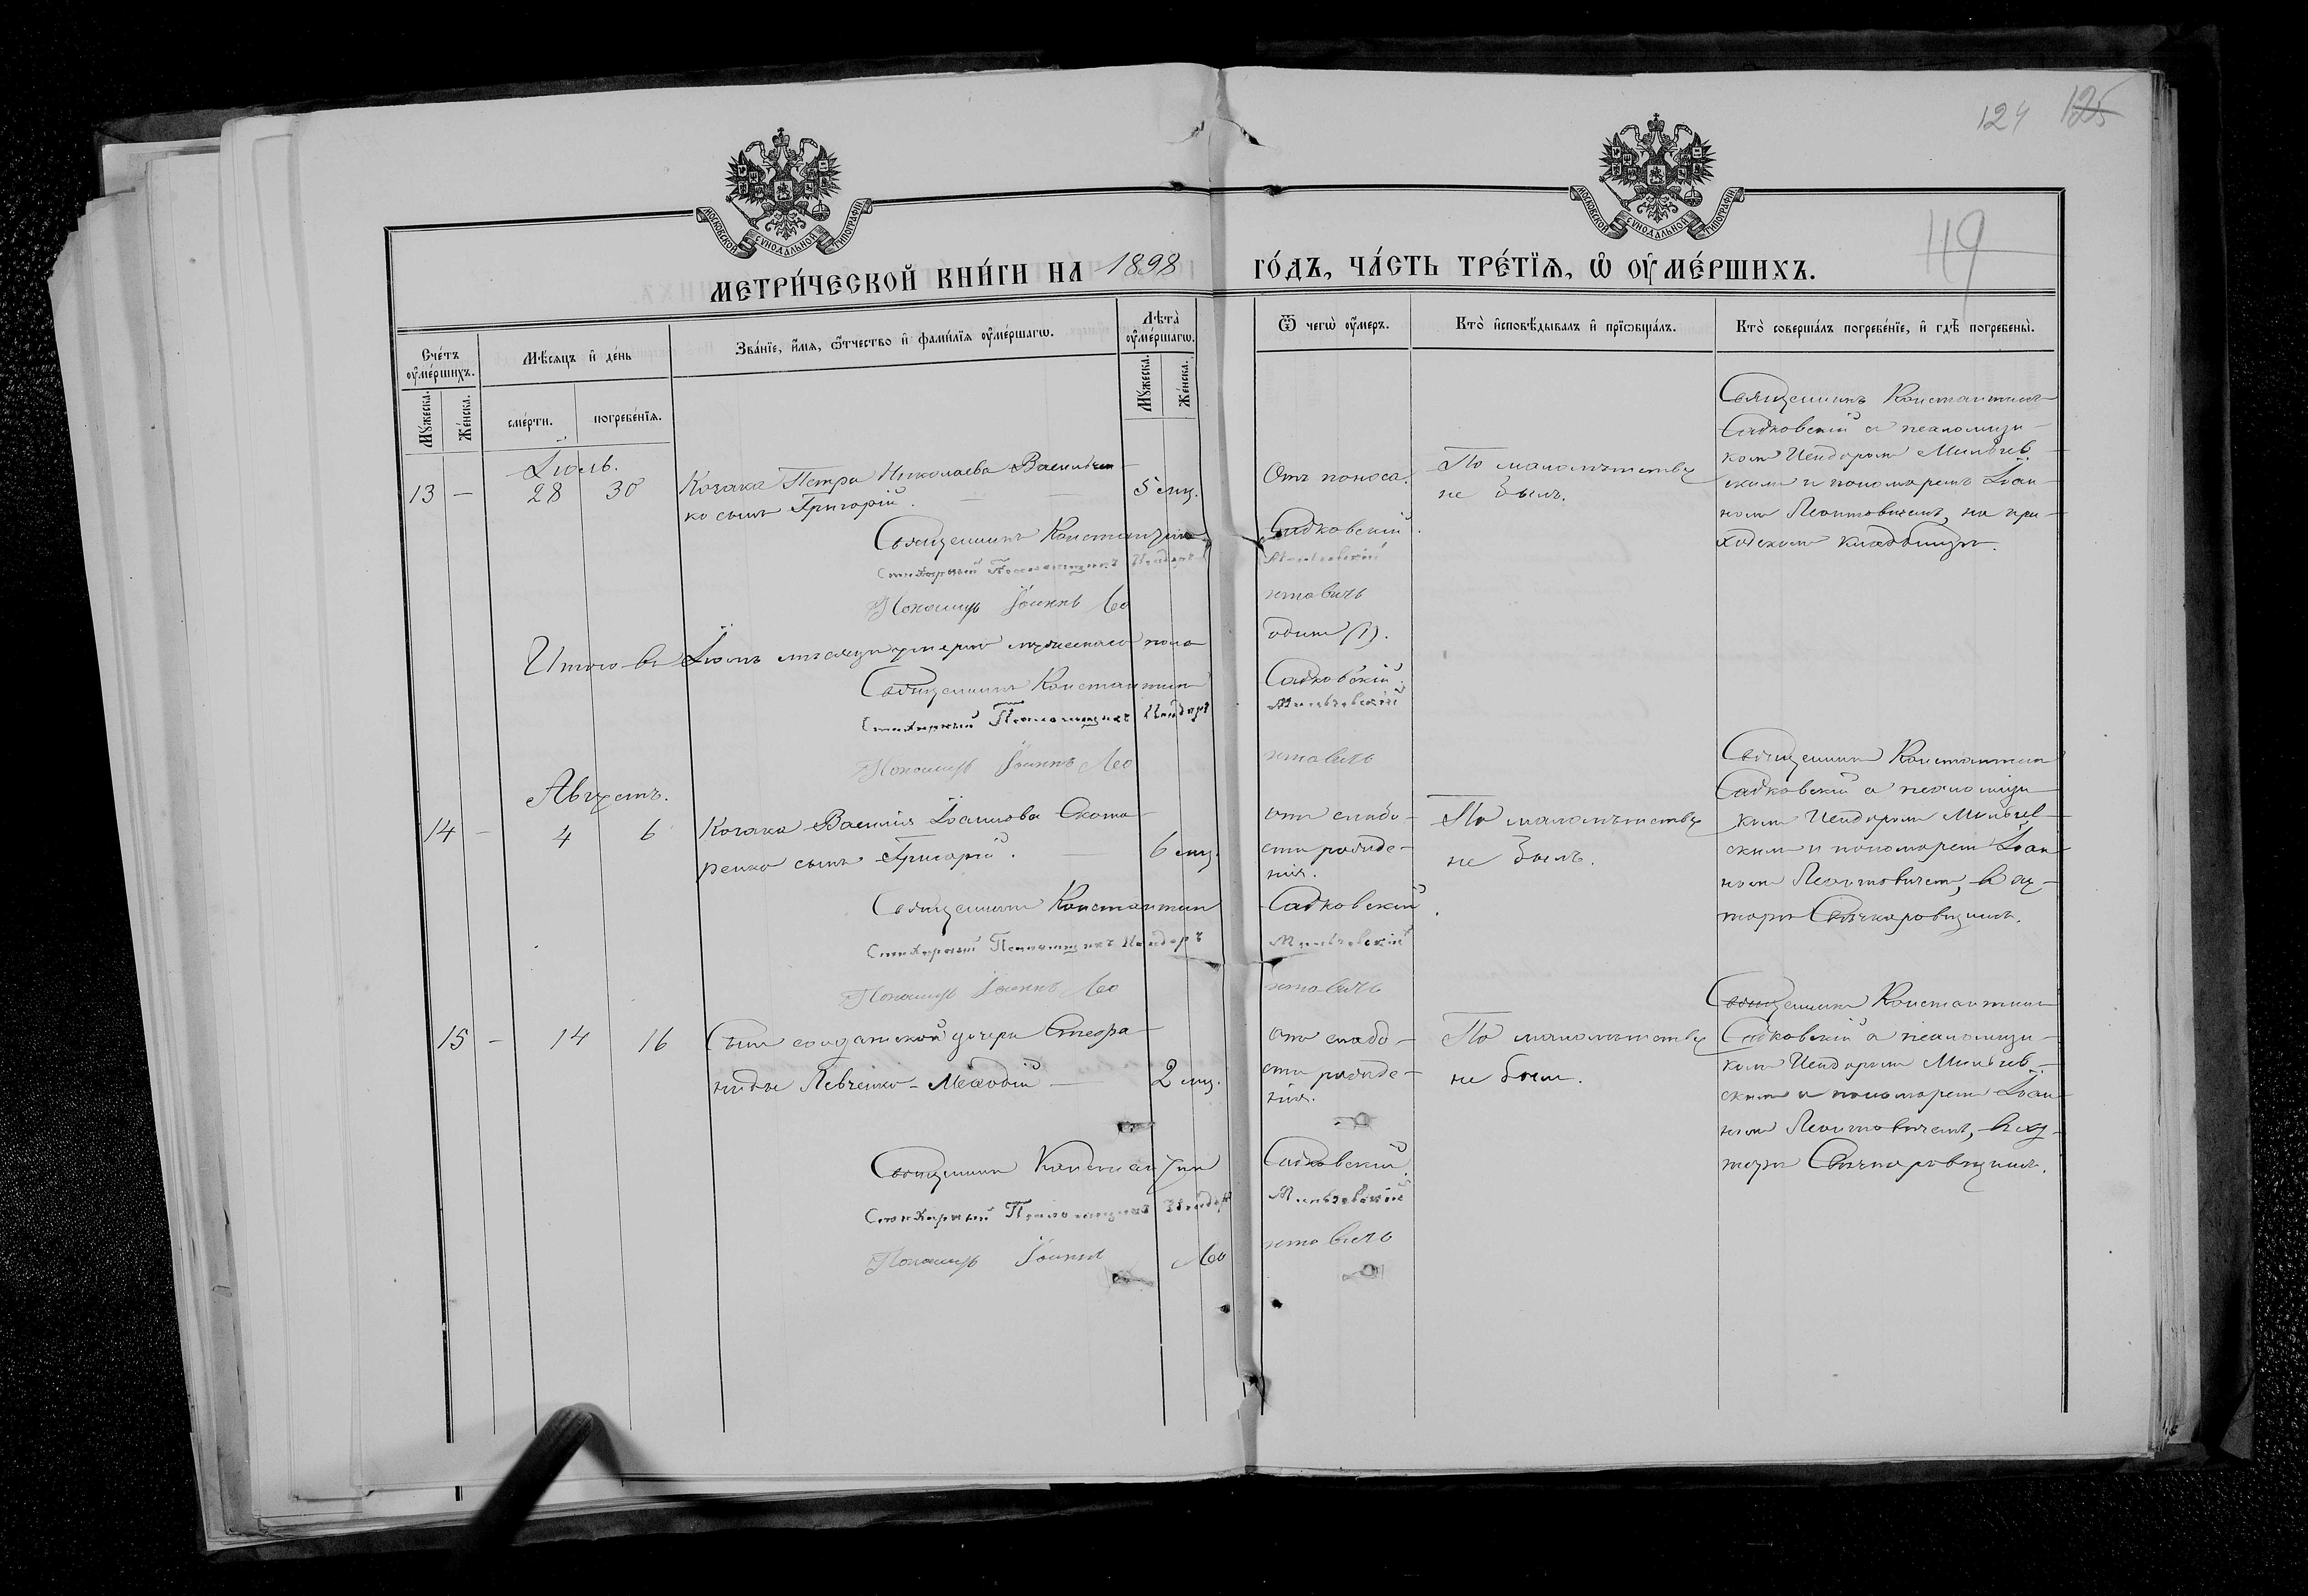 124 125
119
МОСКОВСКОЙ СѴНОДАЛЬНОЙ ТИПОГРАФІИ
МОСКОВСКОЙ СѴНОДАЛЬНОЙ ТИПОГРАФІИ
МЕТРИ́ЧЕСКОЙ КНИ́ГИ НА 1898 ГО́ДЪ, ЧА́СТЬ ТРЕ́ТІѦ, Ѡ҆ ОУ҆МЕ́РШИХЪ.
Сче́тъ оу҆ме́ршихъ.
Мꙋ́жеска.
Же́нска.
Мѣ́сяцъ и҆ де́нь
сме́рти.
погребе́нїѧ.
Зва́нїе, и҆́мѧ, ѻ҆́тчество и҆ фами́лїѧ оу҆ме́ршагѡ.
Лѣта̀ оу҆ме́ршагѡ.
Мꙋ́жеска.
Же́нска.
Ѿ чегѡ̀ оу҆́меръ.
Кто̀ и҆сповѣ́дывалъ и҆ прїѡбща́лъ.
Кто̀ соверша́лъ погребе́нїе, и҆ гдѣ̀ погребены̀.
Іюль.
13 — 28 30
Козака Петра Николаева Васильчен-
ко сынъ Григорій. 5 мц.
Отъ поноса.
По малолѣтству
не былъ.
Священникъ Константинъ
Садковскій съ псаломщи-
комъ Исидоромъ Мильчев-
скимъ и пономаремъ Іоан-
номъ Леонтовичемъ, на при-
ходскомъ кладбищѣ.
Священникъ Константинъ Садковскій.
Стихарный Псаломщикъ Исидоръ Мильчевскій
Пономарь Іоаннъ Леонтовичъ
Итого въ Іюлѣ мѣсяцѣ умерло мужескаго пола одинъ (1).
Священникъ Константинъ Садковскій.
Стихарный Псаломщикъ Исидоръ Мильчевскій
Пономарь Іоаннъ Леонтовичъ
Августъ.
14 — 4 6
Козака Василія Іоаннова Скома-
ренко сынъ Григорій. 6 мц.
отъ слабо-
сти рожде-
нія.
По малолѣтству
не былъ.
Священникъ Константинъ
Садковскій съ псаломщи-
комъ Исидоромъ Мильчев-
скимъ и пономаремъ Іоан-
номъ Леонтовичемъ, въ ху-
торѣ
Священникъ Константинъ Садковскій.
Стихарный Псаломщикъ Исидоръ Мильчевскій
Пономарь Іоаннъ Леонтовичъ
15 — 14 16
Сынъ солдатской дочери Степа-
ниды Левченко - Меѳодій 2 мц.
отъ слабо-
сти рожде-
нія.
По малолѣтству
не былъ.
Священникъ Константинъ
Садковскій съ псаломщи-
комъ Исидоромъ Мильчев-
скимъ и пономаремъ Іоан-
номъ Леонтовичемъ, въ ху-
торѣ
Священникъ Константинъ Садковскій.
Стихарный Псаломщикъ Исидоръ Мильчевскій
Пономарь Іоаннъ Леонтовичъ